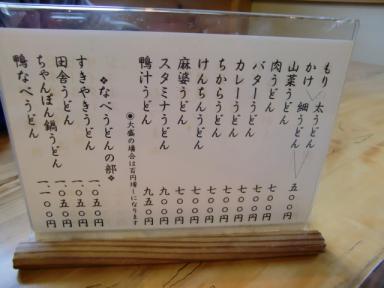 もり 太うどん
かけ 細うどん 五〇〇円
山菜うどん 七〇〇円
肉うどん 七〇〇円
バターうどん 七〇〇円
カレーうどん 七〇〇円
ちからうどん 七〇〇円
けんちんうどん 七〇〇円
麻婆うどん 七〇〇円
スタミナうどん 九〇〇円
鴨汁うどん 九五〇円
◉大盛の場合は百円増しになります
❖なべうどんの部❖
すきやきうどん 一、〇五〇円
田舎うどん 一、〇五〇円
ちゃんぽん鍋うどん 一、〇五〇円
鴨なべうどん 一、一〇〇円